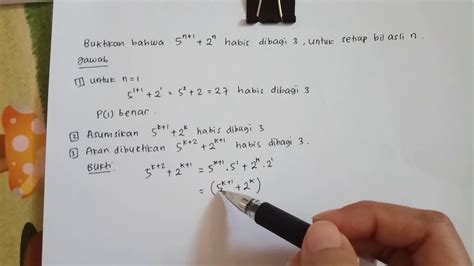 Buktikan bahwa 5ⁿ⁺¹ + 2ⁿ habis dibagi 3, untuk setiap bil asli n.
Jawab
1 untuk n = 1
5¹⁺¹ + 2¹ = 5² + 2 = 27 habis dibagi 3
P(1) benar.
2 Asumsikan 5ᵏ⁺¹ + 2ᵏ habis dibagi 3
3 Akan dibuktikan 5ᵏ⁺² + 2ᵏ⁺¹ habis dibagi 3.
Bukti:
5ᵏ⁺² + 2ᵏ⁺¹ = 5ᵏ⁺¹ . 5¹ + 2ᵏ . 2¹
= (5ᵏ⁺¹ + 2ᵏ)